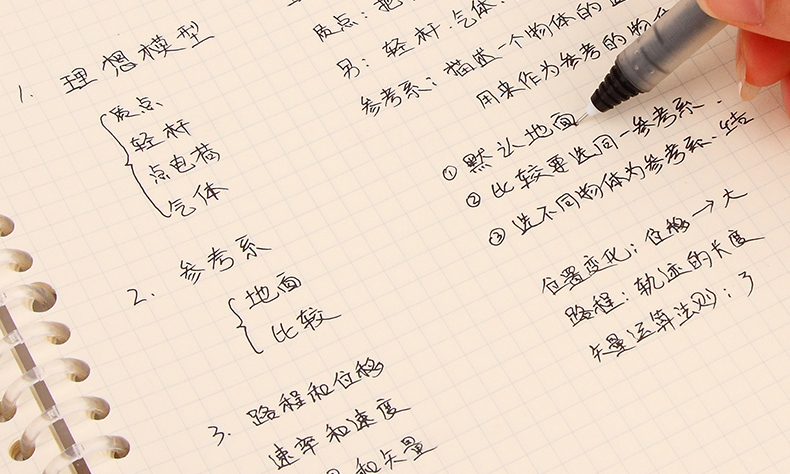 1. 理想模型
质点
轻杆
点电荷
气体
2. 参考系
地面
比较
3. 路程和位移
速率和速度
和矢量
质点：把
另：轻杆.气体.
参考系：描述一个物体的
用来作为参考的物体
① 默认地面
② 比较要选同一参考系.
③ 选不同物体为参考系.结
位置变化：位移→大
路程：轨迹的长度
矢量运算法则：